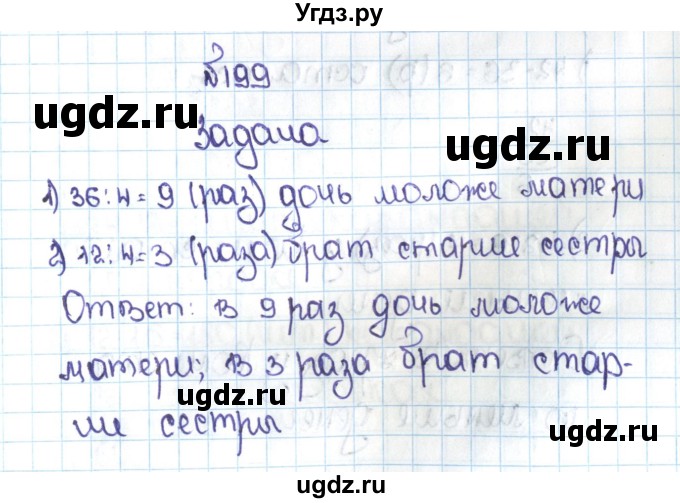 Угдз.ру
№199
ugdz.ru ugdz.ru
Задача
1) 36:4=9 (раз) дочь моложе матери
2) 12:4=3 (раза) брат старше сестры
Ответ: в 9 раз дочь моложе
матери; в 3 раза брат стар-
ugdz.ru
ше сестры ugdz.ru
ugdz.ru